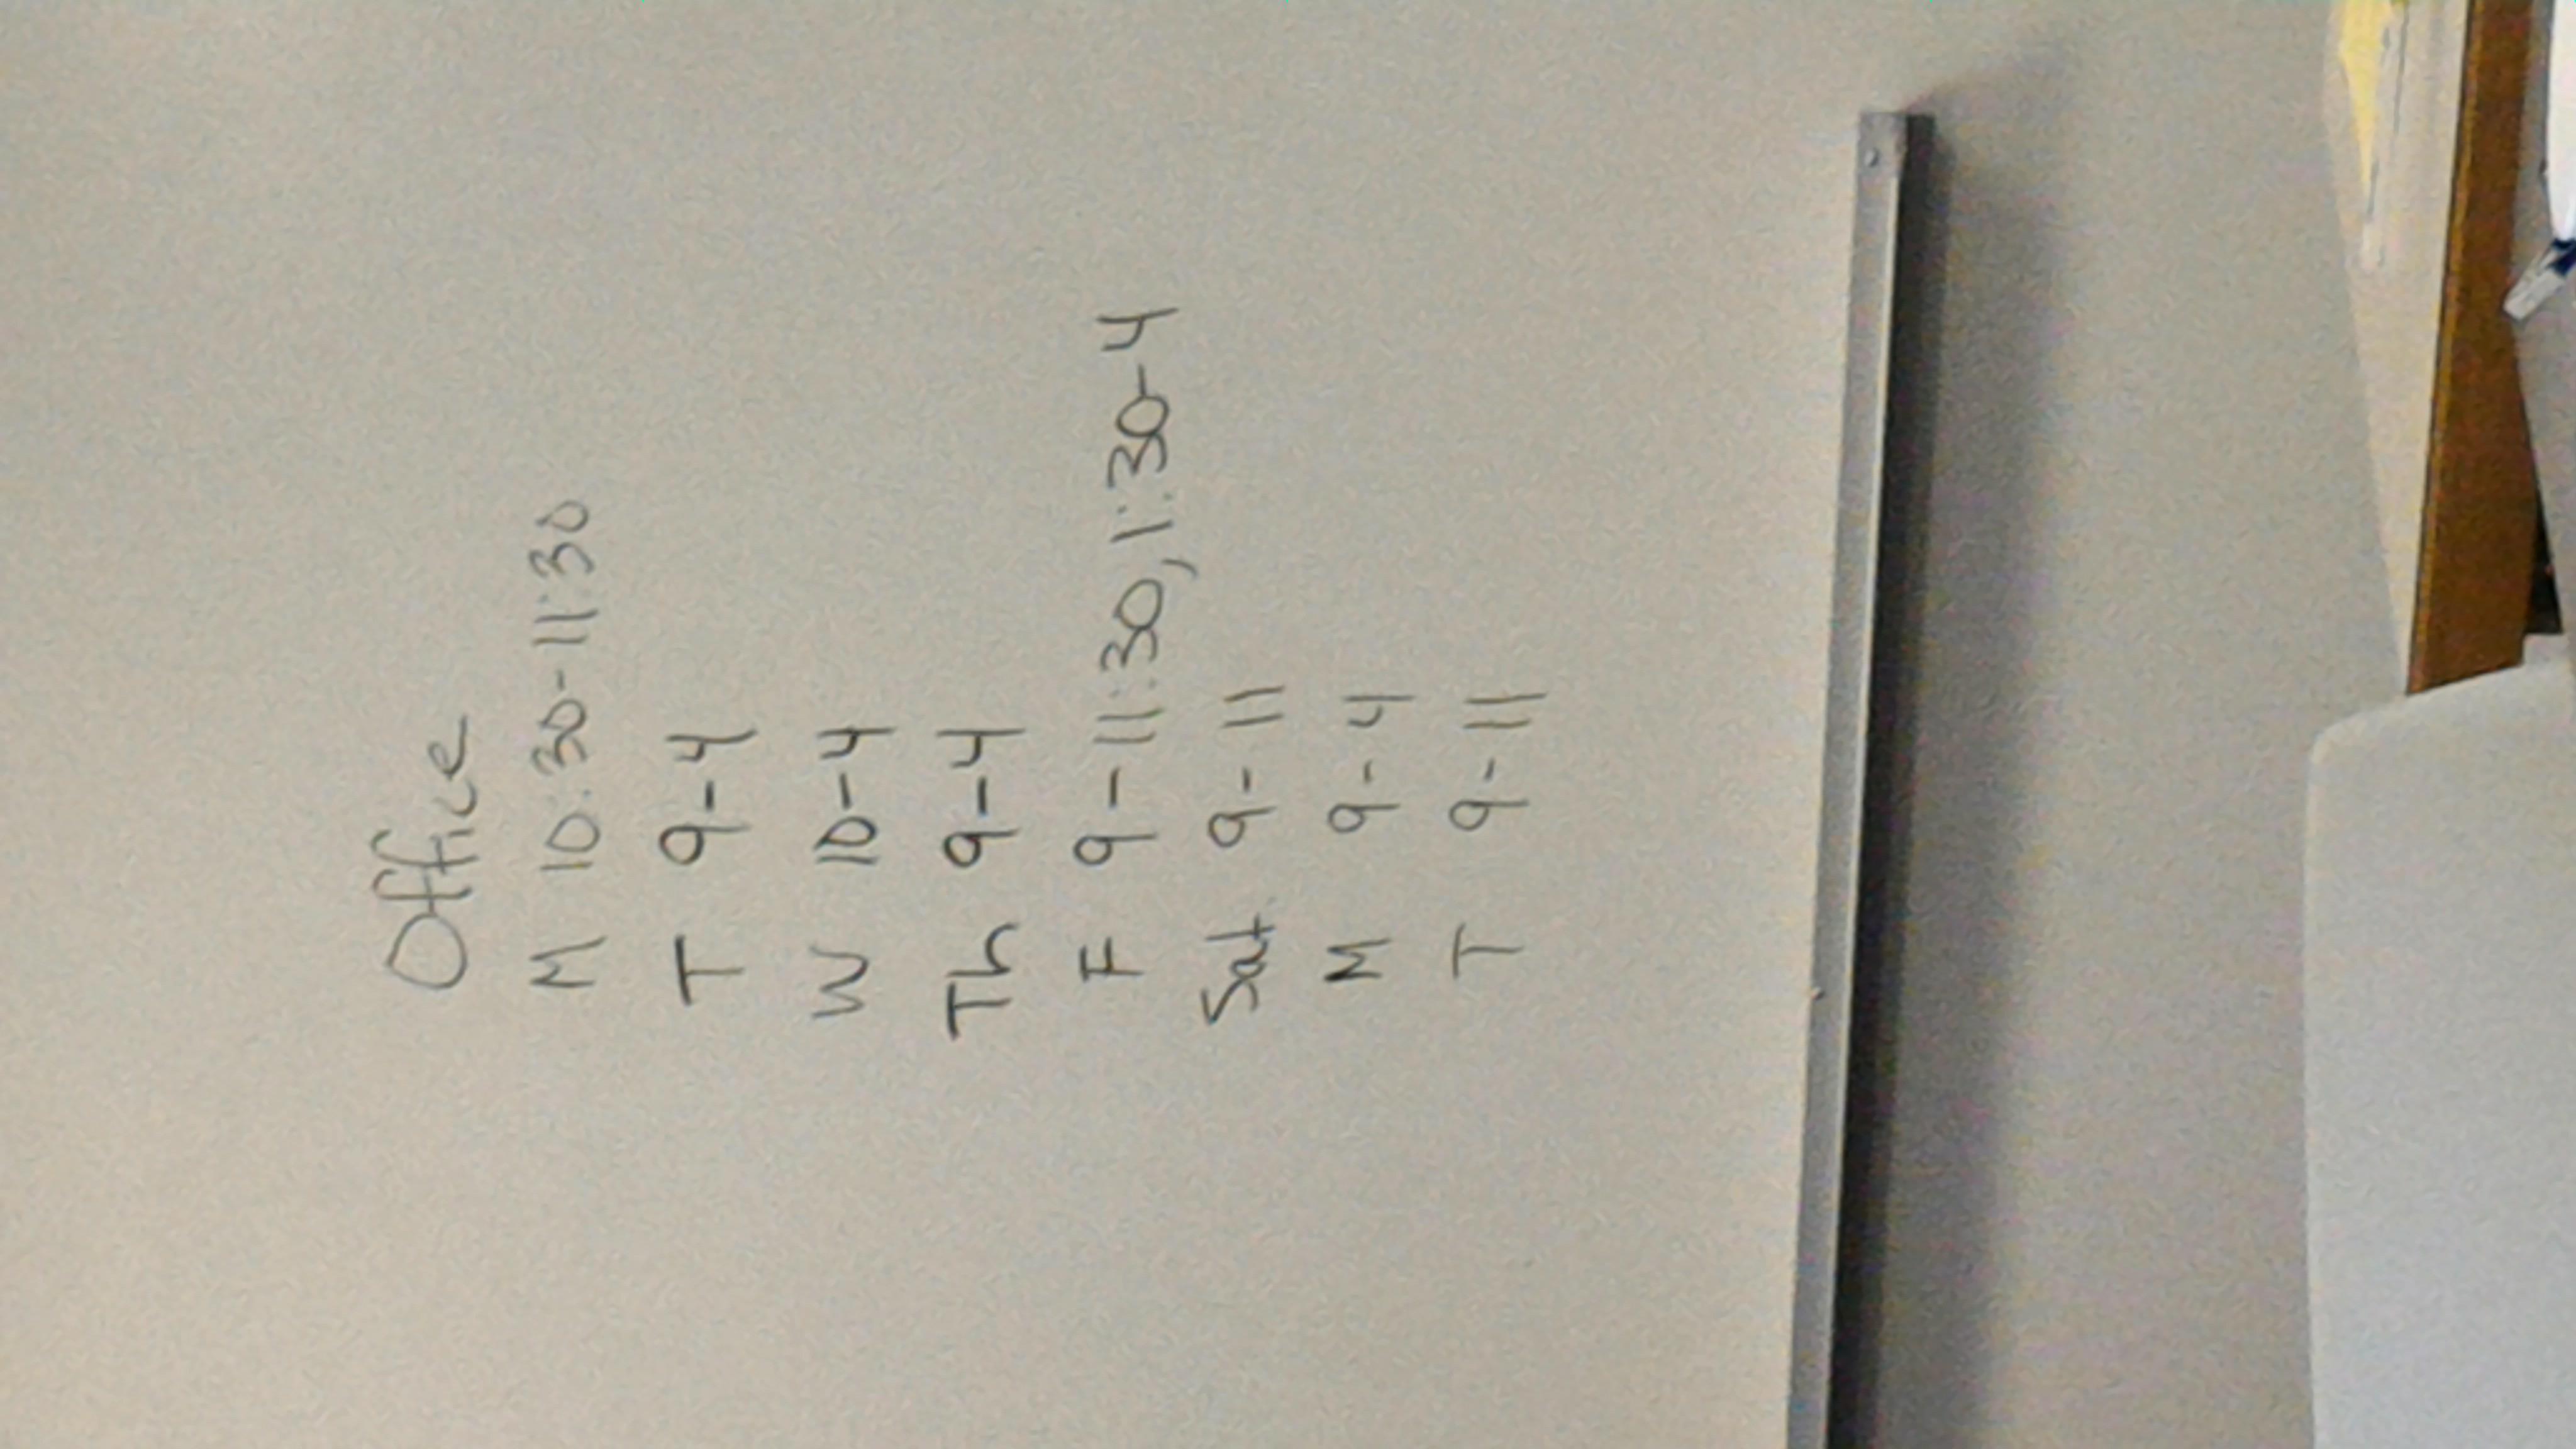 Office
M 10:30-11:30
T 9-4
W 10-4
Th 9-4
F 9-11:30, 1:30-4
Sat 9-11
M 9-4
T 9-11